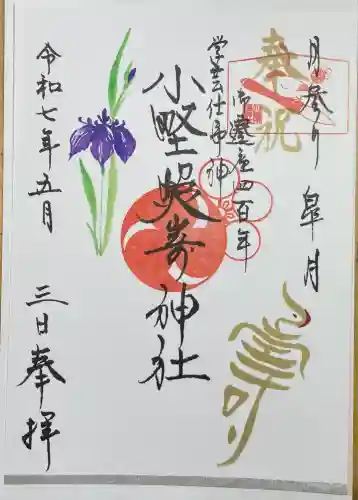 月参り 皐月
奉祝
御遷座四百年
学芸仕事神
小野照崎神社
寿
令和七年五月
三日奉拝